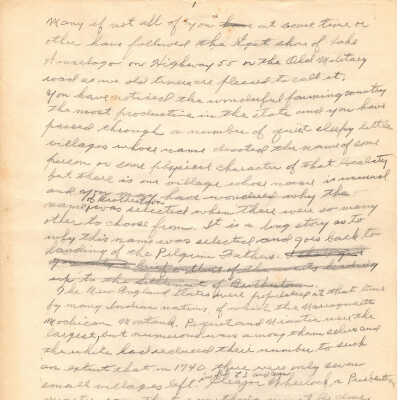 1
Many if not all of "you" have at some time or
other have followed the East shore of Lake
Winnebago on Highway 55 or the Old Military
road as we old timers are pleased to call it.
You have noticed the wonderful farming country
the most productive in the state and you have
passed through a number of quiet sleepy little
villages whose name denoted the name of some
person or some physical character of that locality
but there is one village whose name is unusual
and you may have wondered why the
name Brothertown was selected when there were so many
other to choose from. It is a long story as to
why this name was selected and goes back to
landing of the Pilgrim Fathers.
up to the settlement of Brothertown.
The New England states were populated at that time
by many Indian nations of which the Narragansett
Mochican Montauk, Pequot and Niantic were the
largest, but numerous wars among themselves and
the white had reduced their number to such
an extent that in 1740 there were only seven
small villages left. Eleazor Wheelock a Presbyterian